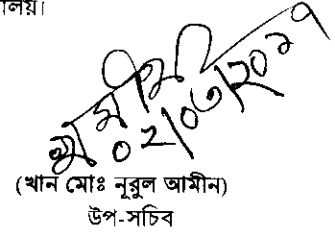 লয়।
০২/০৩/২০২১
(খান মোঃ নূরুল আমীন)
উপ-সচিব